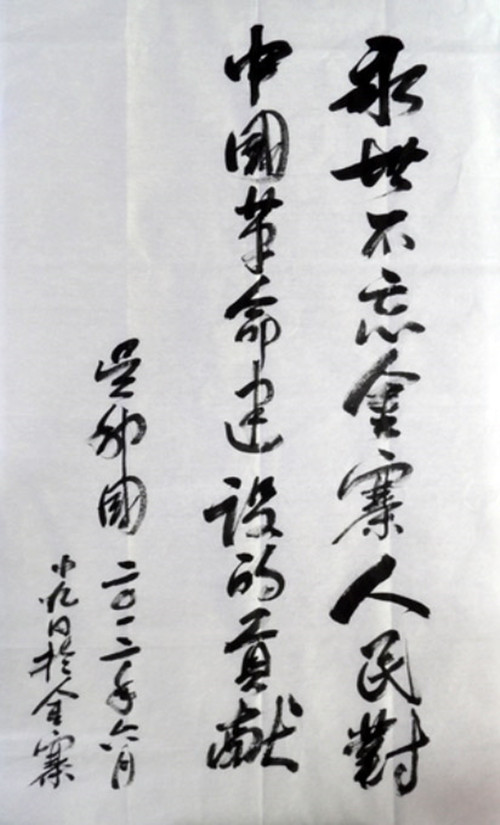 永世不忘金寨人民對
中國革命建設的貢獻
吳邦國 二〇一二年六月
九日於金寨